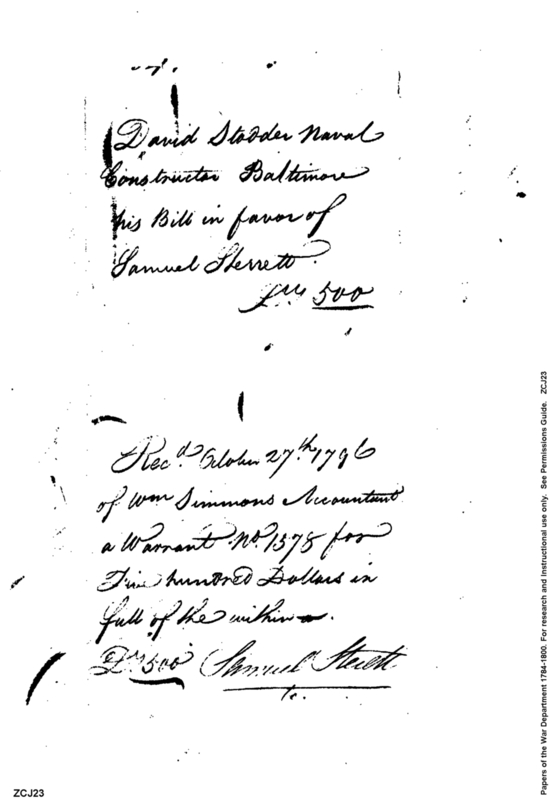 David Stodder Naval
Constructor Baltimore
his Bill in favor of
Samuel Sterrett
500
Recd. October 27th. 1796
of Wm Simmons Accountant
a Warrant No 1378 for
Five hundred Dollars in
full of the within.
Drs 500 Samuel Sterett
ZCJ23
Papers of the War Department 1784-1800. For research and instructional use only. See Permissions Guide. ZCJ23